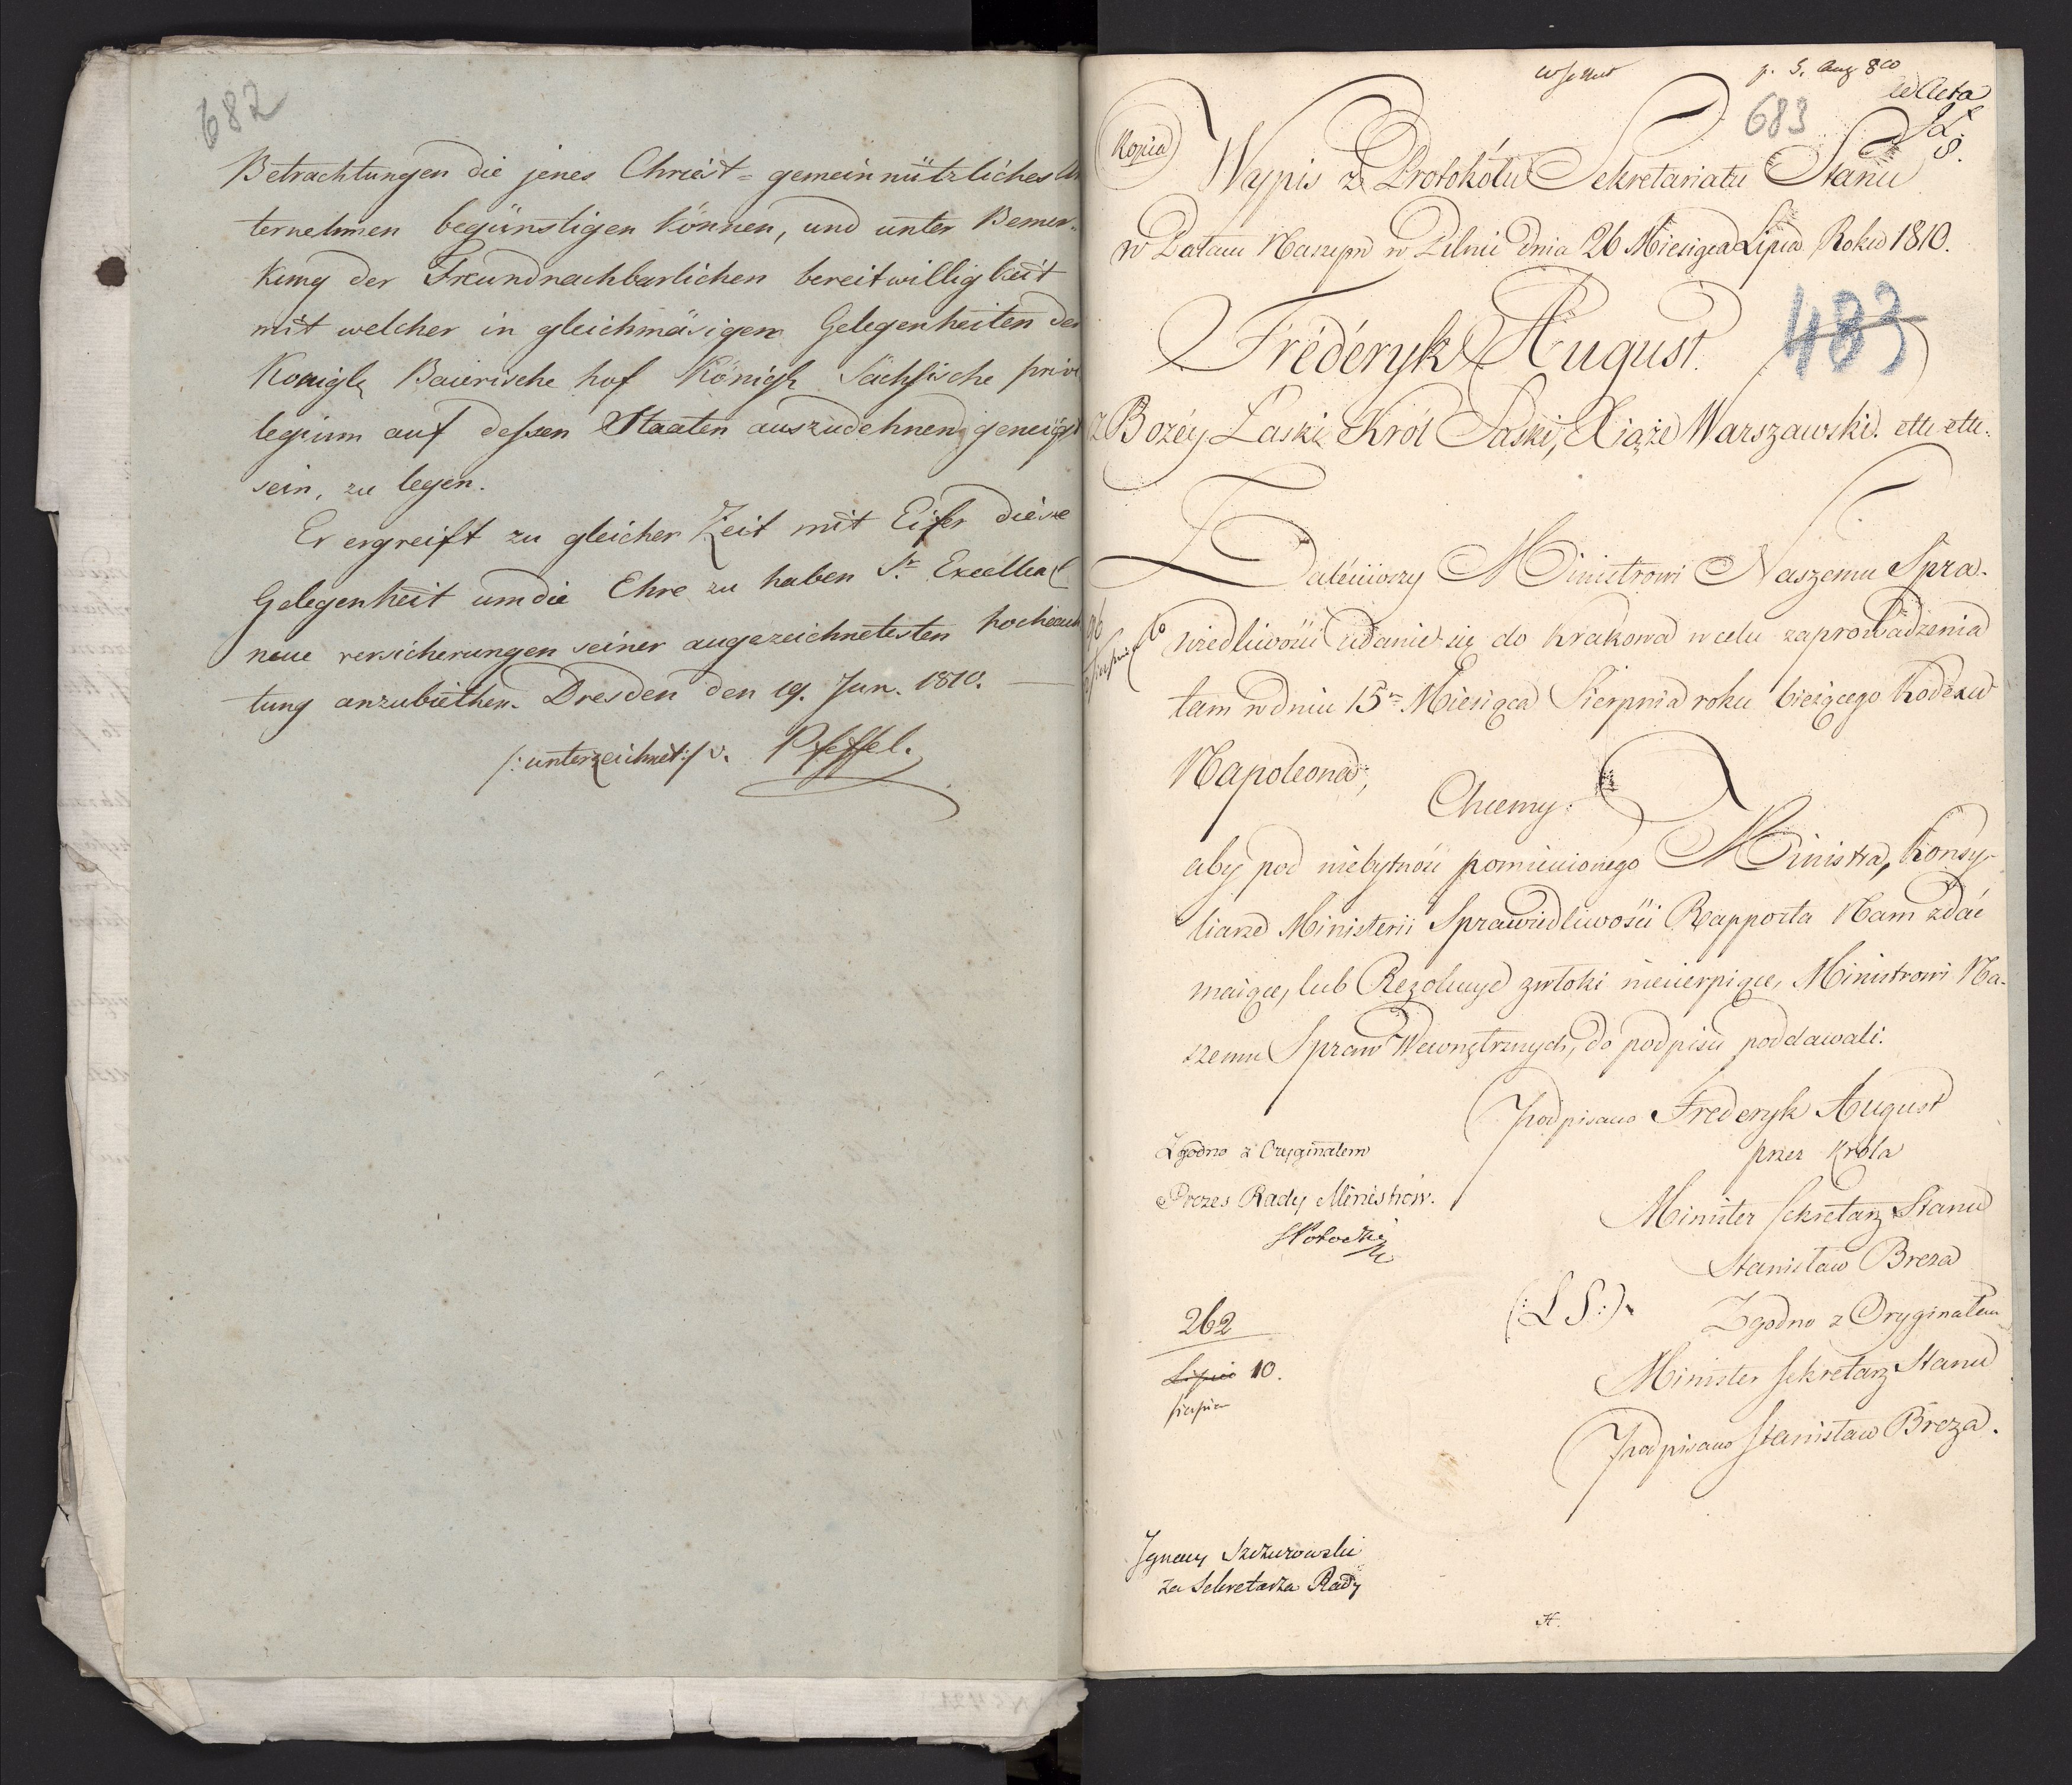 682
Betrachtungen die jenes Chriest = gemeinnützliches Un
ternehmen begünstigen können, und unter Bemer-
kung der Freundnachbarlichen bereitwilligkeit
mit welcher in gleichmäsigen Gelegenheiten der
Konigle Baierische hof Königl Sächsische privi
legium auf dessen Staaten auszudehnen geneigt
sein, zu legen.
Er ergreift zu gleicher Zeit mit Eifer diese
Gelegenheit um die Ehre zu haben Sr. Excellen
neue versicherungen seiner augezeichnetesten hocheach
tung anzubiethen. Dresden den 19. Jun. 1810.
/: unterzeichnet :/ v. Pfeffel.
p. 5. Aug 810
ad Acta
683
Kopia
Wypis z Protokółu Sekretariatu Stanu
w Pałacu Naszym w Pilnic dnia 26 Miesiąca Lipca Roku 1810.
Fréderyk August.
483
z Bożéy Łaski Król Saski, Xiąże Warszawski. etc etc.
Zaléciwszy Ministrowi Naszemu Spra-
wiedliwości udanie się do Krakowa w celu zaprowadzenia
tam w dniu 15m Miesiąca Sierpnia roku bieżącego Kodexu
Napoleona,
Chcemy:
aby pod niebytność pomienionego Ministra, Konsy-
liarze Ministerii Sprawiedliwości Rapporta Nam zdać
maiące, lub Rezolucye zwłoki niecierpiące, Ministrowi Na-
szemu Spraw Wewnętrznych, do podpisu poddawali.
Podpisano Frederyk August
przez Króla
Zgodno z Oryginałem
Prezes Rady Ministrów.
SPotocki
Minister Sekretarz Stanu
Stanisław Breza
(: L S :)
Zgodno z Oryginałem
Minister Sekretarz Stanu
Podpisano Stanisław Breza.
262
Lipca 10.
sierpnia
Ignacy Szczurowski
za Sekretarza Rady